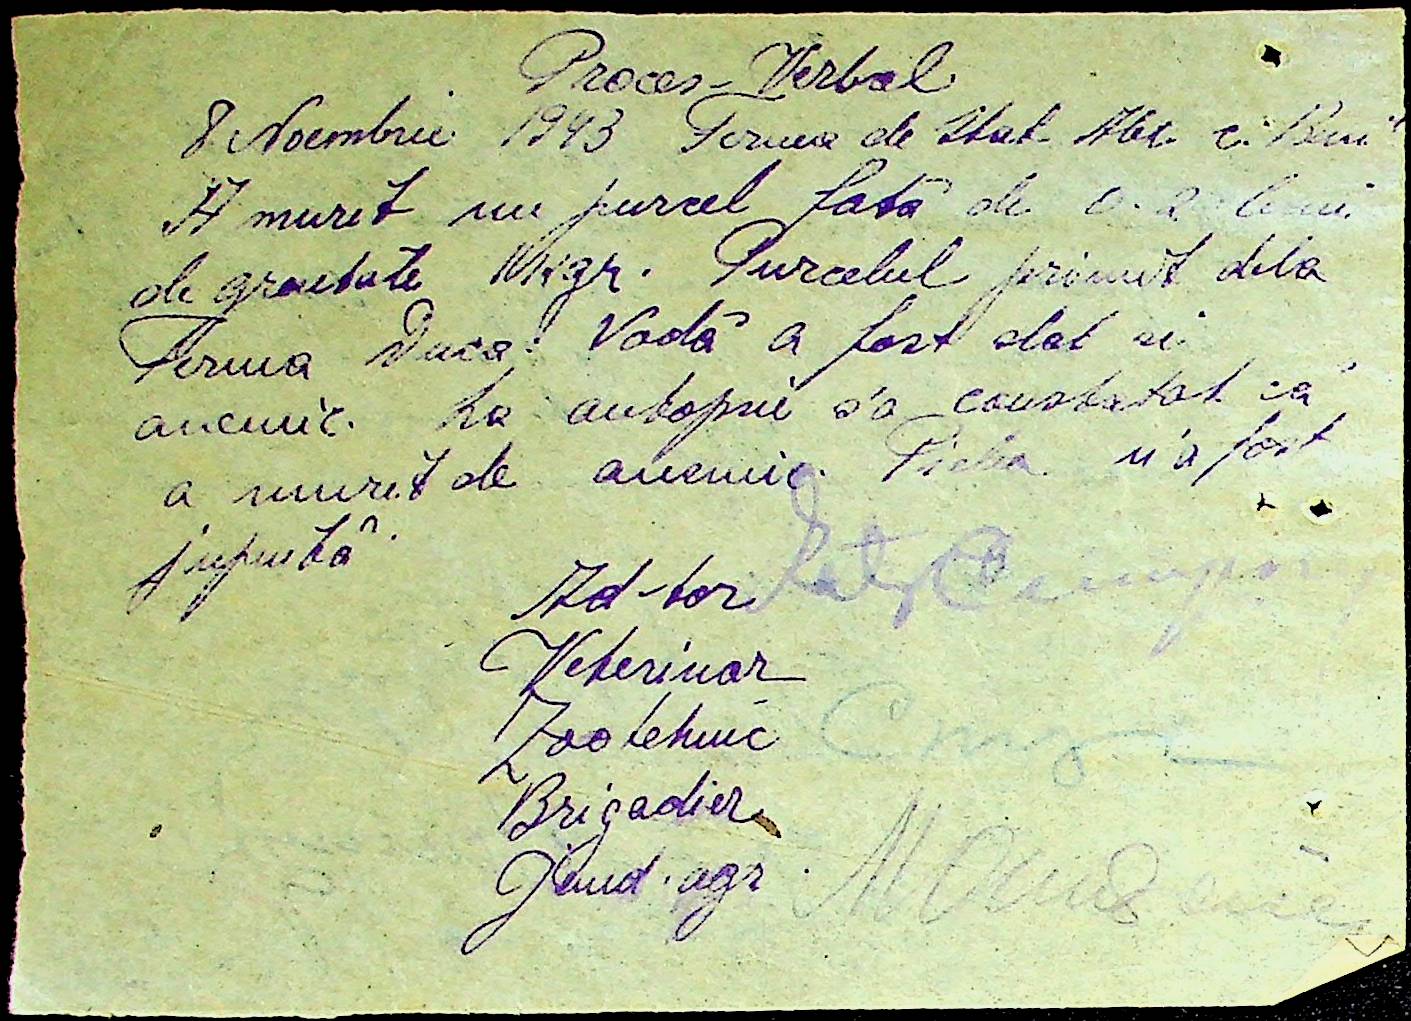 Proces-Verbal
8 Noembrie 1943 Ferma de Stat
A murit un purcel fată de 2 luni
de greutate 10 kgr. Purcelul primit dela
Ferma Duca-Vodă a fost slab și
anemic. La autopsie s'a constatat că
a murit de anemie. Pielea n'a fost
jupuită.
Ad-tor
Veterinar
Zootehnic
Brigadier
Jand. agr.